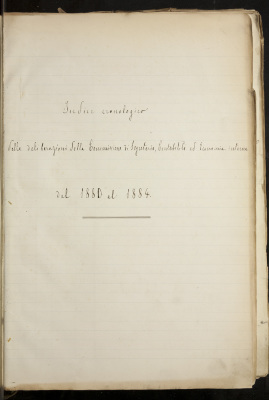 Indice cronologico
delle deliberazioni della Commissione di Segreteria, Contabilità ed Economia interna
dal 1880 al 1884.